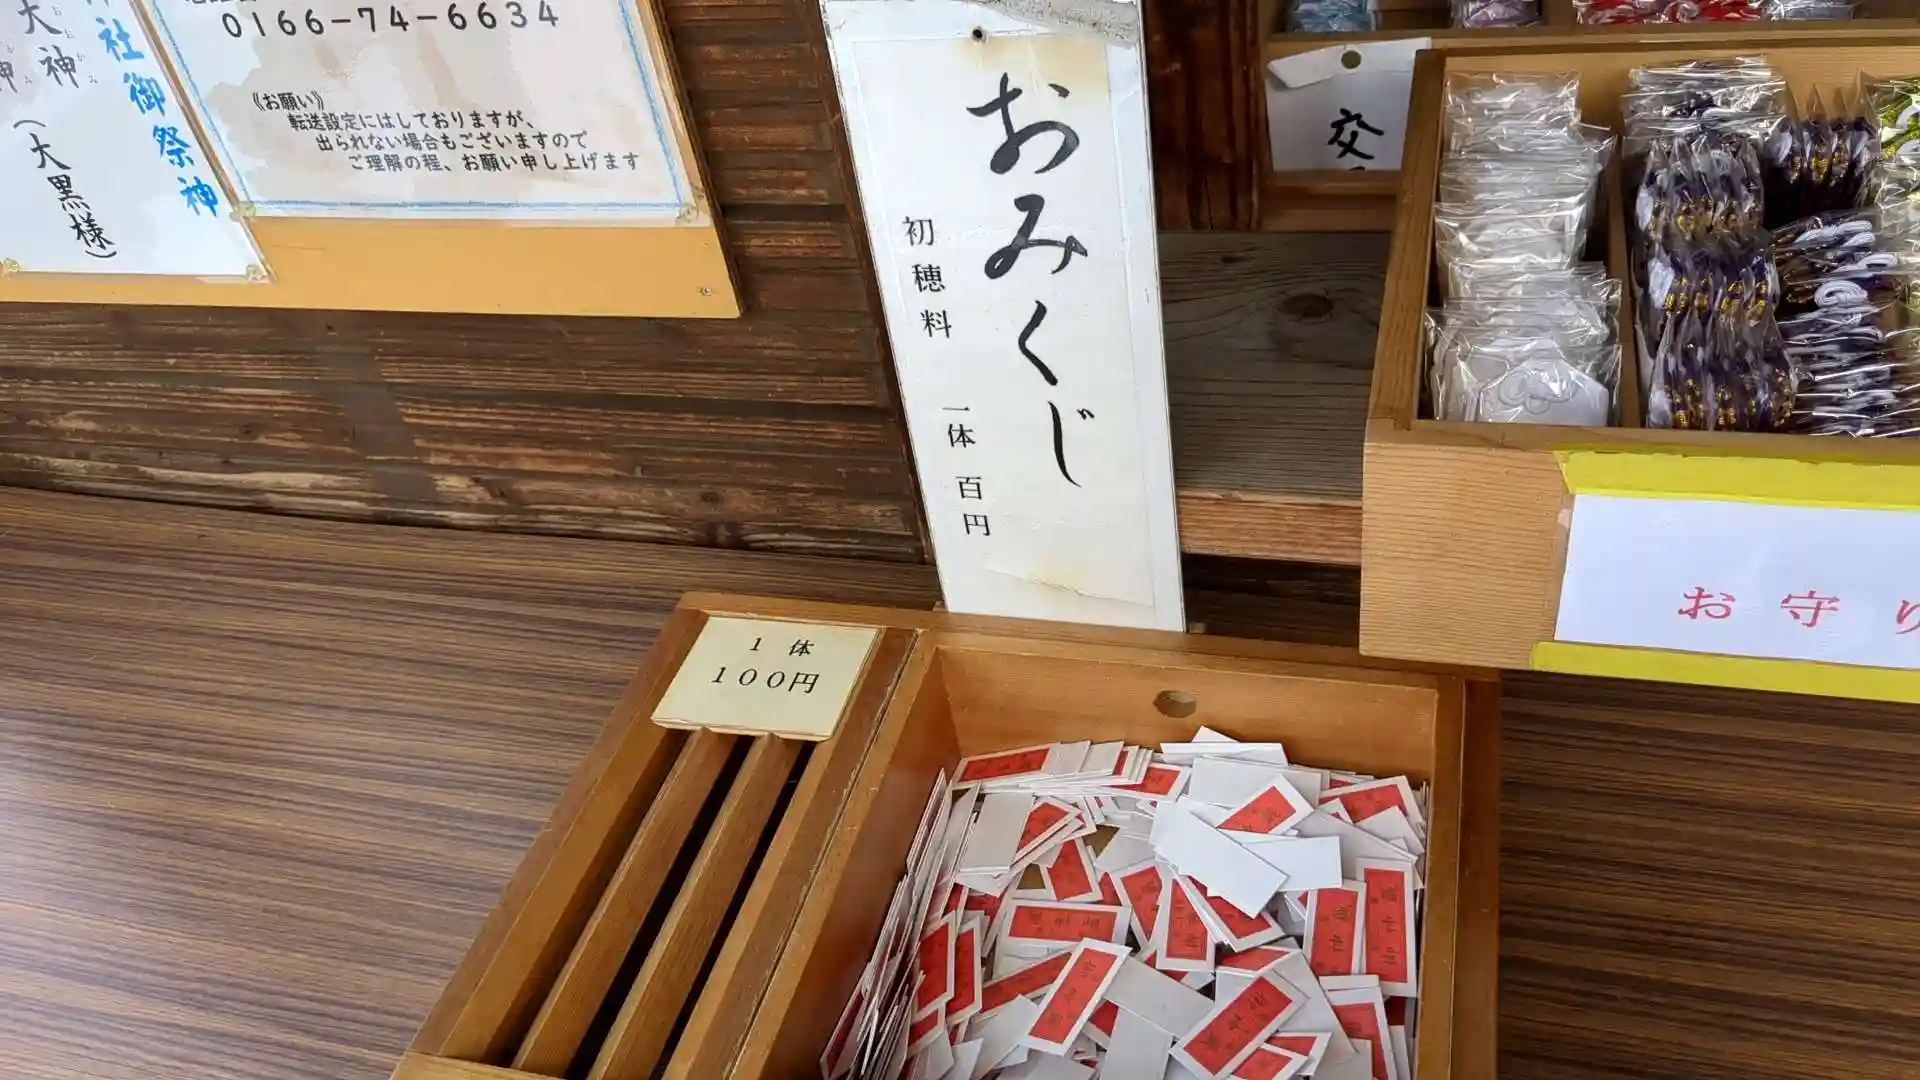 社御祭神
大神
神
(大黒様)
0166-74-6634
《お願い》
転送設定にはしておりますが、
出られない場合もございますので
ご理解の程、お願い申し上げます
おみくじ
初穂料 一体 百円
交
1 体
100円
お守り